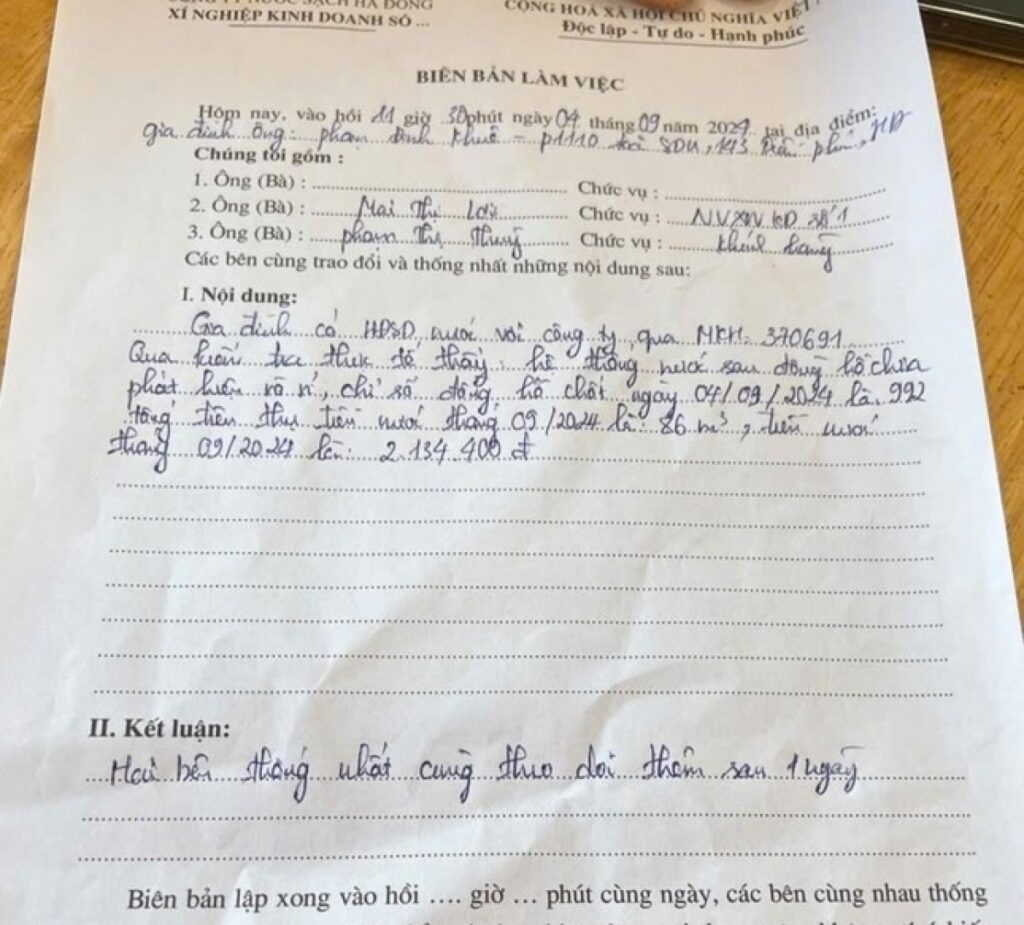 CÔNG TY NƯỚC SẠCH HÀ ĐÔNG
XÍ NGHIỆP KINH DOANH SỐ ...
CỘNG HOÀ XÃ HỘI CHỦ NGHĨA VIỆT
Độc lập - Tự do - Hạnh phúc
BIÊN BẢN LÀM VIỆC
Hôm nay, vào hồi 11 giờ 30 phút ngày 04 tháng 09 năm 2024 tại địa điểm:
gia đình ông: phạm đình khuê - p1110 toà SDU, 143 trần phú, HĐ
Chúng tôi gồm :
1. Ông (Bà) : ........ Chức vụ : ........
2. Ông (Bà) : Mai Thị Chức vụ : NVXN KD số 1
3. Ông (Bà) : phạm Thị Chức vụ : khách hàng
Các bên cùng trao đổi và thống nhất những nội dung sau:
I. Nội dung:
Gia đình có HĐSD nước với công ty qua MKH: 370691
Qua kiểm tra thực tế thấy: hệ thống nước sau đồng hồ chưa
phát hiện rò rỉ, chỉ số đồng hồ chốt ngày 04/09/2024 là 992
tổng tiêu thụ tiền nước tháng 09/2024 là: 86 m³, tiền nước
tháng 09/2024 là: 2.134.400 đ
II. Kết luận:
Hai bên thống nhất cùng theo dõi thêm sau 1 ngày
Biên bản lập xong vào hồi .... giờ ... phút cùng ngày, các bên cùng nhau thống